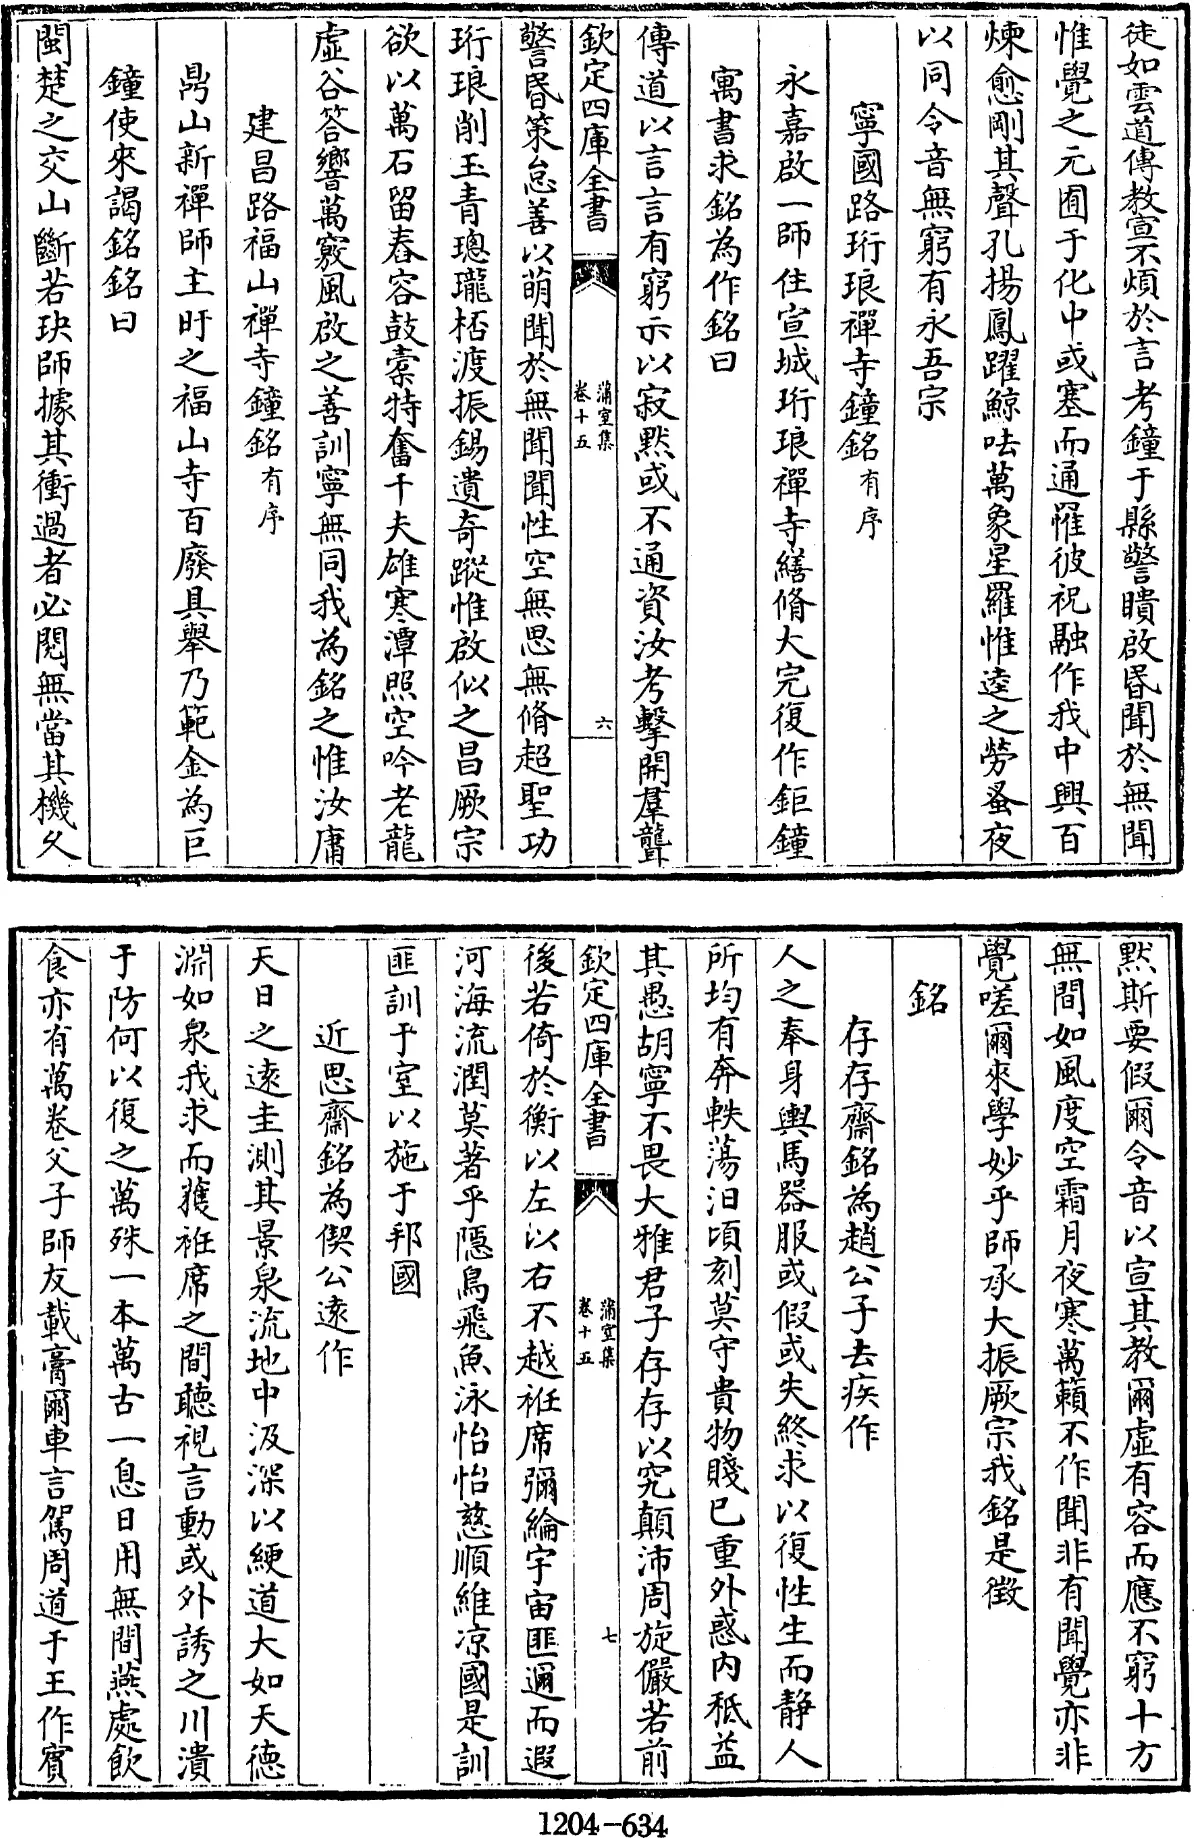 徒如雲道傳教宣不煩於言考鐘于縣警聵啟昏聞於無聞
惟覺之元囿于化中或塞而通嶊彼祝融作我中興百
煉愈剛其聲孔揚鳳躍鯨呿萬象星羅惟逵之勞蚤夜
以同令音無窮有永吾宗
寧國路珩琅禪寺鐘銘有序
永嘉啟一師住宣城珩琅禪寺繕脩大完復作鉅鐘
寓書求銘為作銘曰
傳道以言言有窮示以寂黙或不通資汝考擊開羣聾
欽定四庫全書
蒲室集
卷十五
六
警昏策怠善以萌聞於無聞聞性空無思無脩超聖功
珩琅削玉青璁瓏桮渡振錫遺奇蹤惟啟似之昌厥宗
欲以萬石留舂容鼓橐特奮千夫雄寒潭照空吟老龍
虛谷答響萬竅風啟之善訓寧無同我為銘之惟汝庸
建昌路福山禪寺鐘銘有序
鼎山新禪師主盱之福山寺百廢具舉乃範金為巨
鐘使來謁銘銘曰
閩楚之交山斷若玦師據其衝過者必閱無當其機久
黙斯要假爾令音以宣其教爾虛有容而應不窮十方
無間如風度空霜月夜寒萬籟不作聞非有聞覺亦非
覺嗟爾來學妙乎師承大振厥宗我銘是徵
銘
存存齋銘為趙公子去疾作
人之奉身輿馬器服或假或失終求以復性生而静人
所均有奔軼蕩汩頃刻莫守貴物賤已重外惑内秪益
其愚胡寧不畏大雅君子存存以究顛沛周旋儼若前
欽定四庫全書
蒲室集
卷十五
七
後若倚於衡以左以右不越袵席彌綸宇宙匪邇而遐
河海流潤莫著乎隱鳥飛魚泳怡怡慈順維凉國是訓
匪訓于室以施于邦國
近思齋銘為偰公遠作
天日之逺圭測其景泉流地中汲深以綆道大如天德
淵如泉我求而獲袵席之間聽視言動或外誘之川潰
于防何以復之萬殊一本萬古一息日用無間燕處飲
食亦有萬卷父子師友載膏爾車言駕周道于王作賓
1204-634